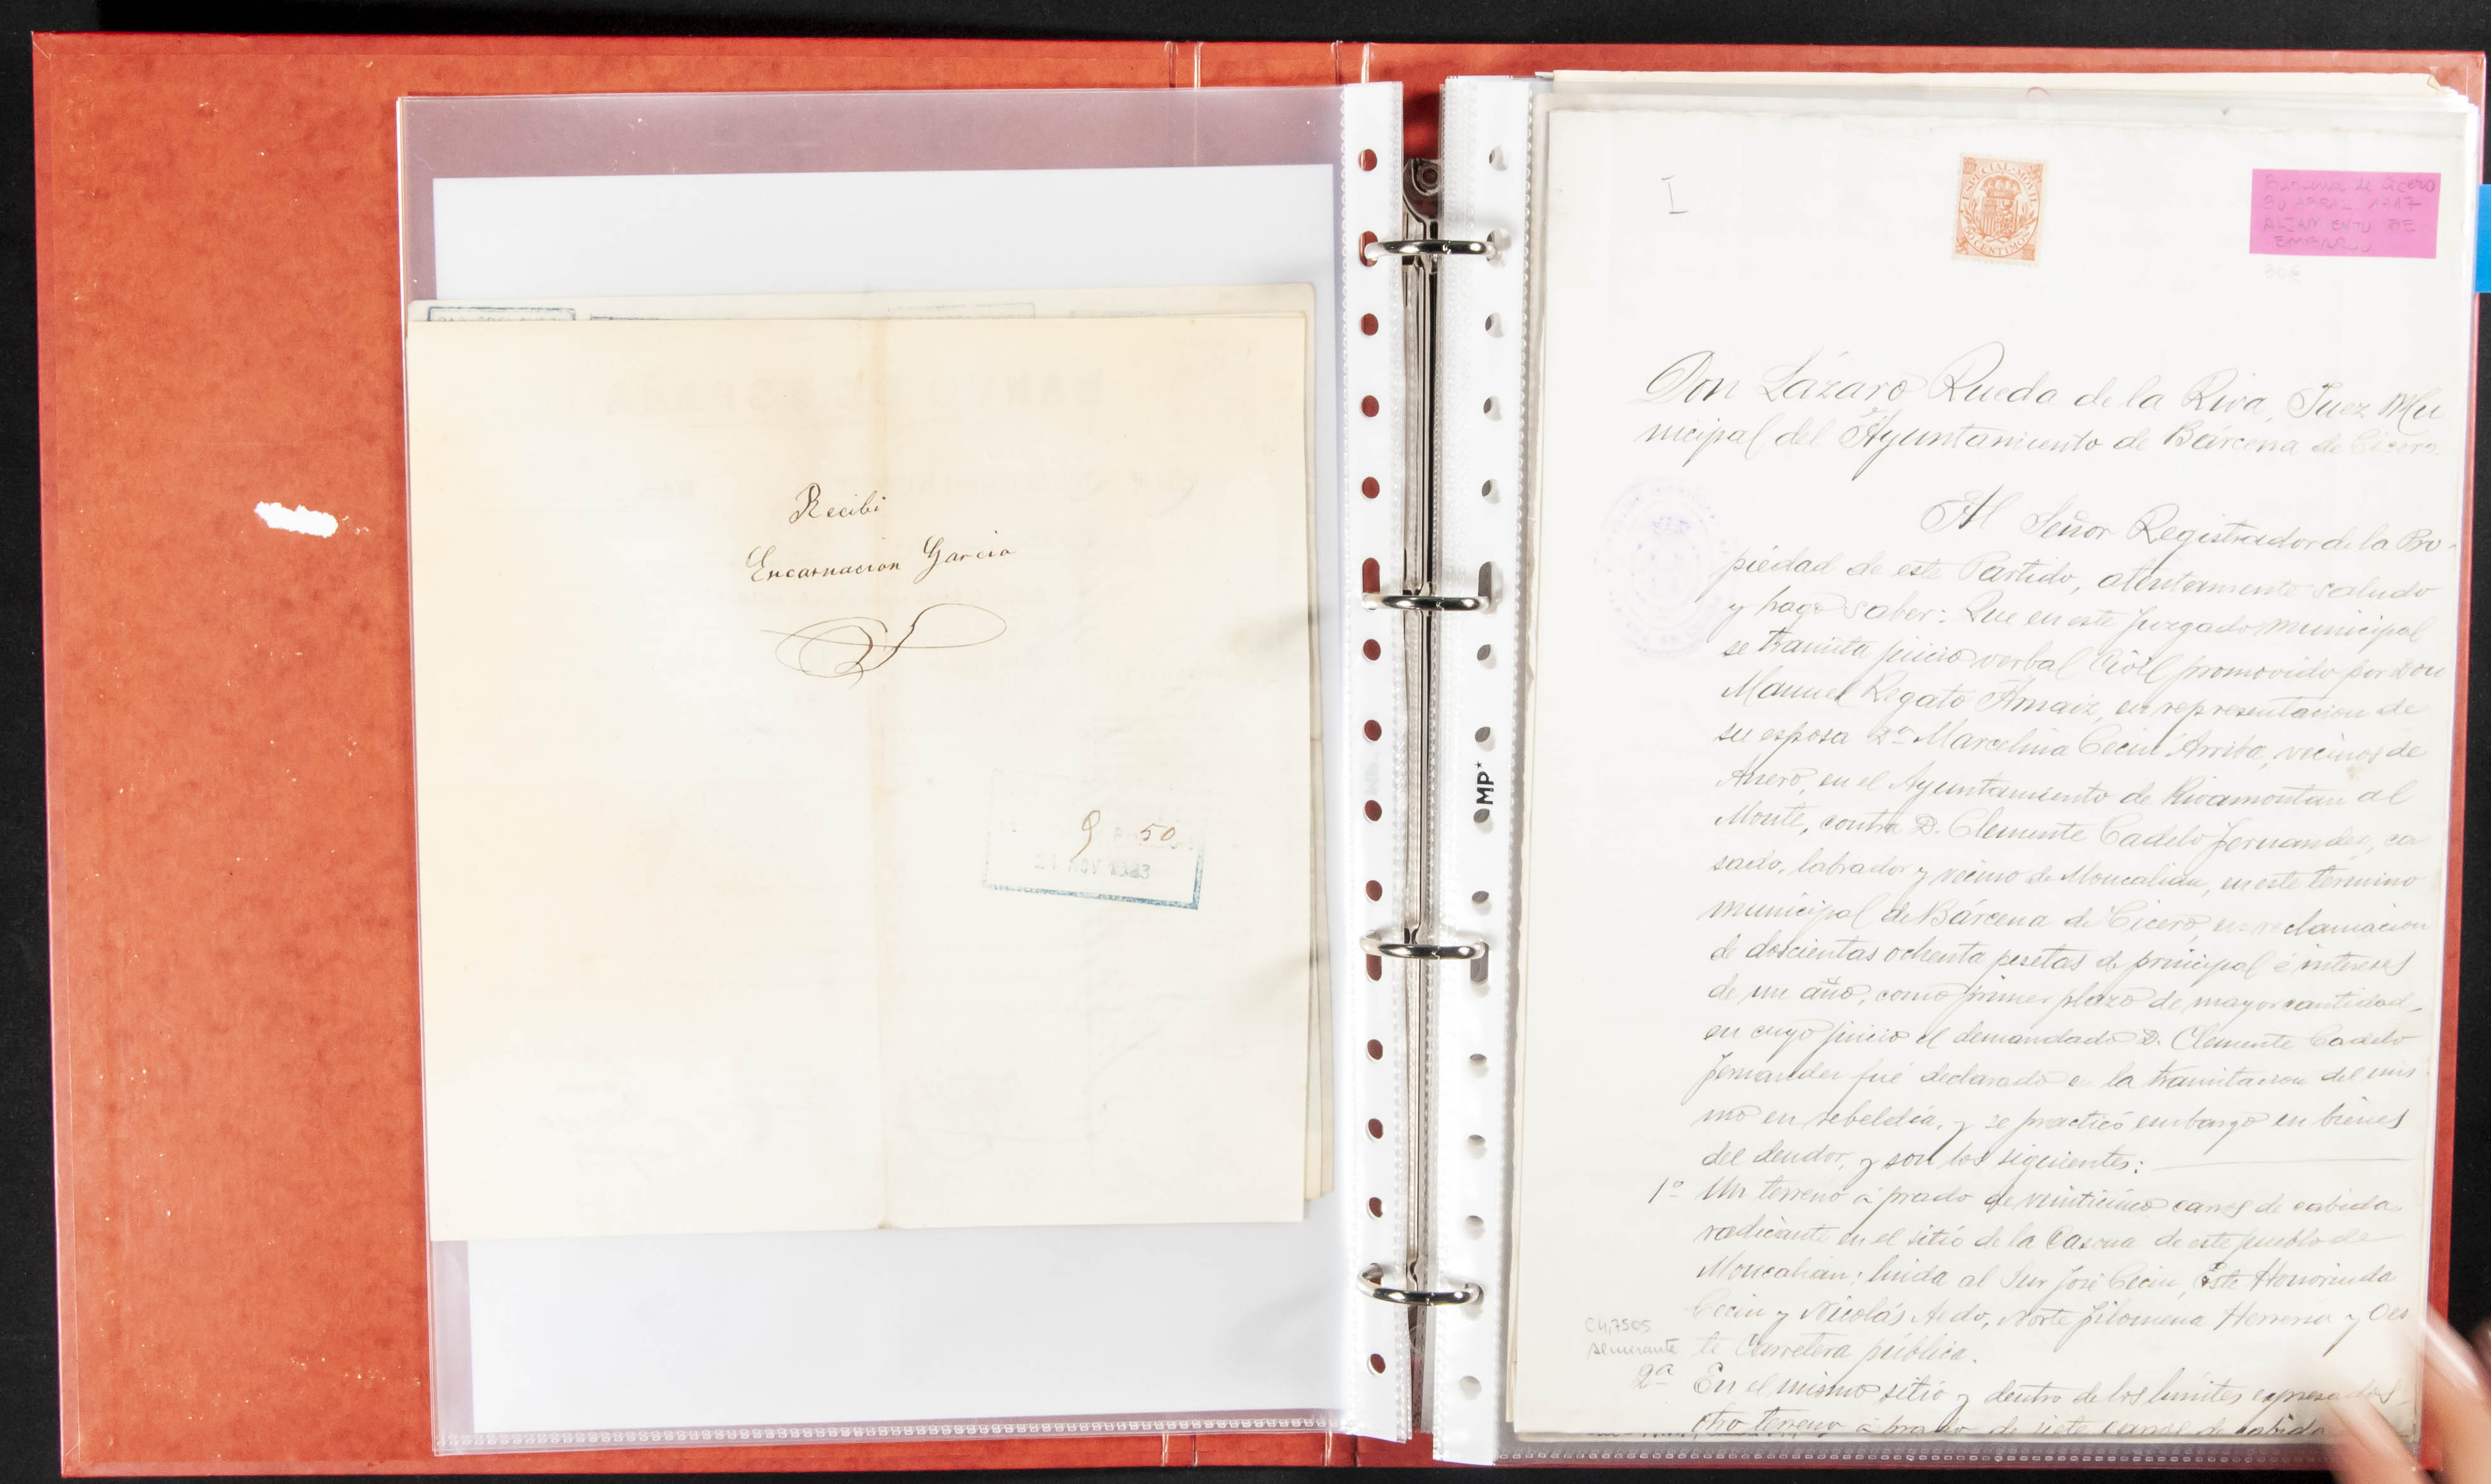 Recibi
Encarnacion Garcia
9 50
21 NOV
MP*
I
ESPECIAL MOVIL
CENTIMOS
Barcena de Cicero
30 ABRIL
ALZAMIENTO DE
EMBARGO
30€
Don Lázaro Rueda de la Riva, Juez Mu
nicipal del Ayuntamiento de Bárcena de Cicero.
Al Señor Registrador de la Pro-
piedad de este Partido, atentamente saludo
y hago saber: Que en este Juzgado municipal
se tramita juicio verbal civil promovido por Don
Manuel Regato Arnaiz, en representacion de
su esposa Dª Marcelina Cecin Arriba, vecinos de
Anero, en el Ayuntamiento de Rivamontan al
Monte, contra D. Clemente Cadelo Fernandez, ca
sado, labrador y vecino de Moncalian, en este término
municipal de Bárcena de Cicero, en reclamacion
de doscientas ochenta pesetas de principal é intereses
de un año, como primer plazo de mayor cantidad,
en cuyo juicio el demandado D. Clemente Cadelo
Fernandez fué declarado e la tramitacion del mis
mo en rebeldia, y se practicó embargo en bienes
del deudor, y son los siguientes:
1º Un terreno á prado de veinticinco carros de cabida
radicante en el sitio de la Casona de este pueblo de
Moncalian; linda al Sur José Cecin, Este Honorinda
Cecin y Nicolás Aedo, Norte Filomena Herreria y Oes
te Carretera pública.
C4,7505
semejante
2ª En el mismo sitio y dentro de los limites expresados
otro terreno á prado de siete carros de cabida